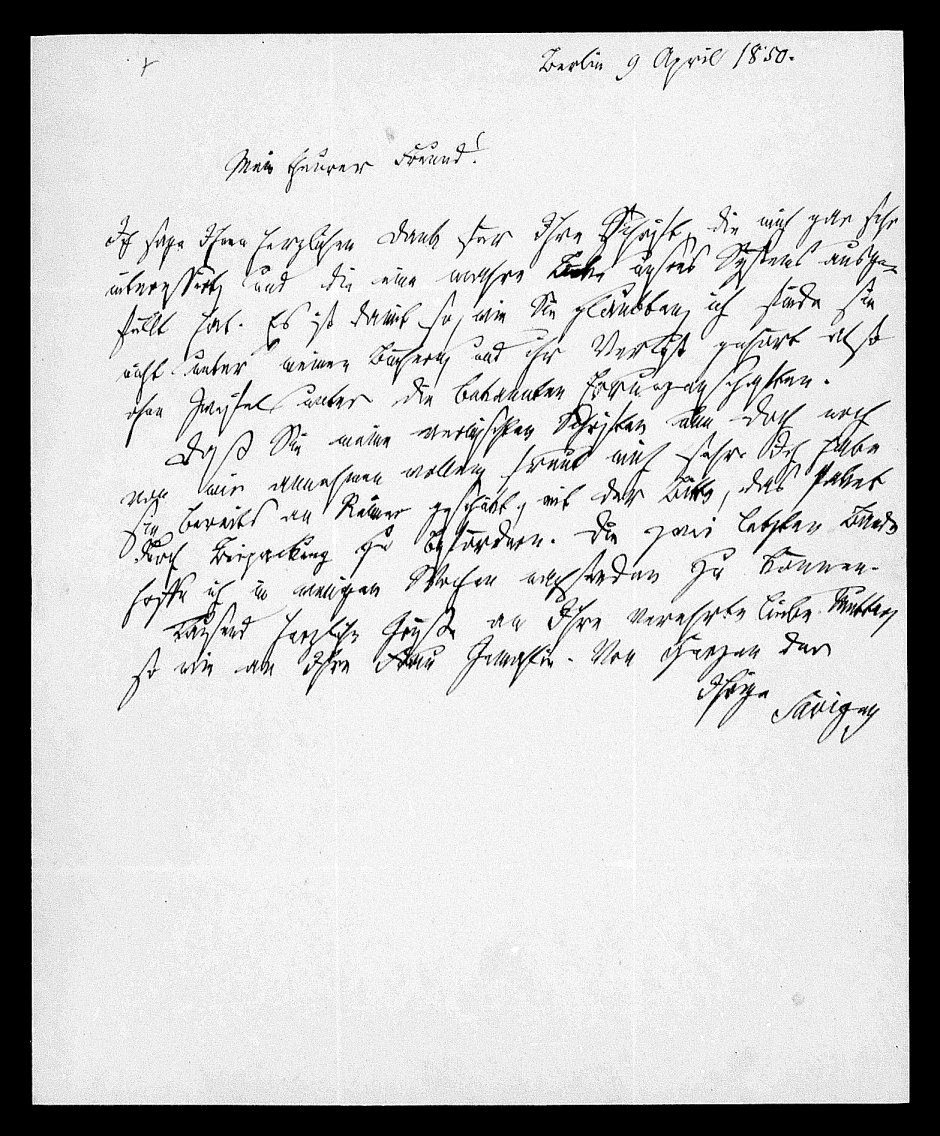 Berlin 9 April 1850.
Mein theurer Freund!
Ich sage Ihnen herzlichen Dank für Ihre Schrift, die mich gar sehr
interessirt, und die eine wahre Lücke unsres Systems ausge-
füllt hat. Es ist damit so, wie Sie glaubten, ich finde sie
nicht unter meinen Büchern, und ihr Verlust gehört also
ohne Zweifel unter die bekannten Errungenschaften.
Daß Sie meine vermischten Schriften nun doch noch
von mir annehmen wollen, freut mich sehr. Ich habe
sie bereits an Reimer geschickt, mit der Bitte, das Paket
durch Beipackung zu befördern. Die zwei letzten Bände
hoffe ich in wenigen Wochen nachsenden zu können.
Tausend herzliche Grüße an Ihre verehrte liebe Mutter,
so wie an Ihre Frau Gemahlin. Von Herzen der
Ihrige
Savigny